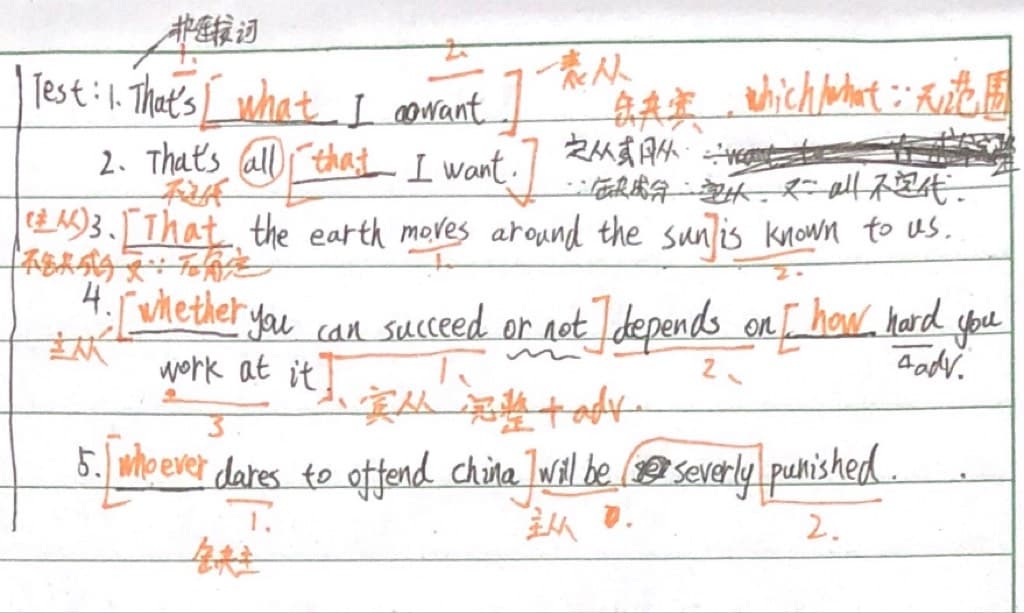 非连接词
1. 2. 表从
Test: 1. That's [ what I want. ] 缺宾 . which/what ∵ 无范围
2. That's all [ that I want. ] 定从或同从
不定代 ∵ 缺成分 ∴ 定从. 又∵ all 不定代.
(主从) 3. [That the earth moves around the sun] is known to us.
不缺成分 又∵ 1. 2.
4. [whether you can succeed or not] depends on [how hard you
主从 adv.
work at it] 1、 2、
3 宾从 完整 + adv.
5. [whoever dares to offend china] will be severly punished.
1. 主从 2.
缺主